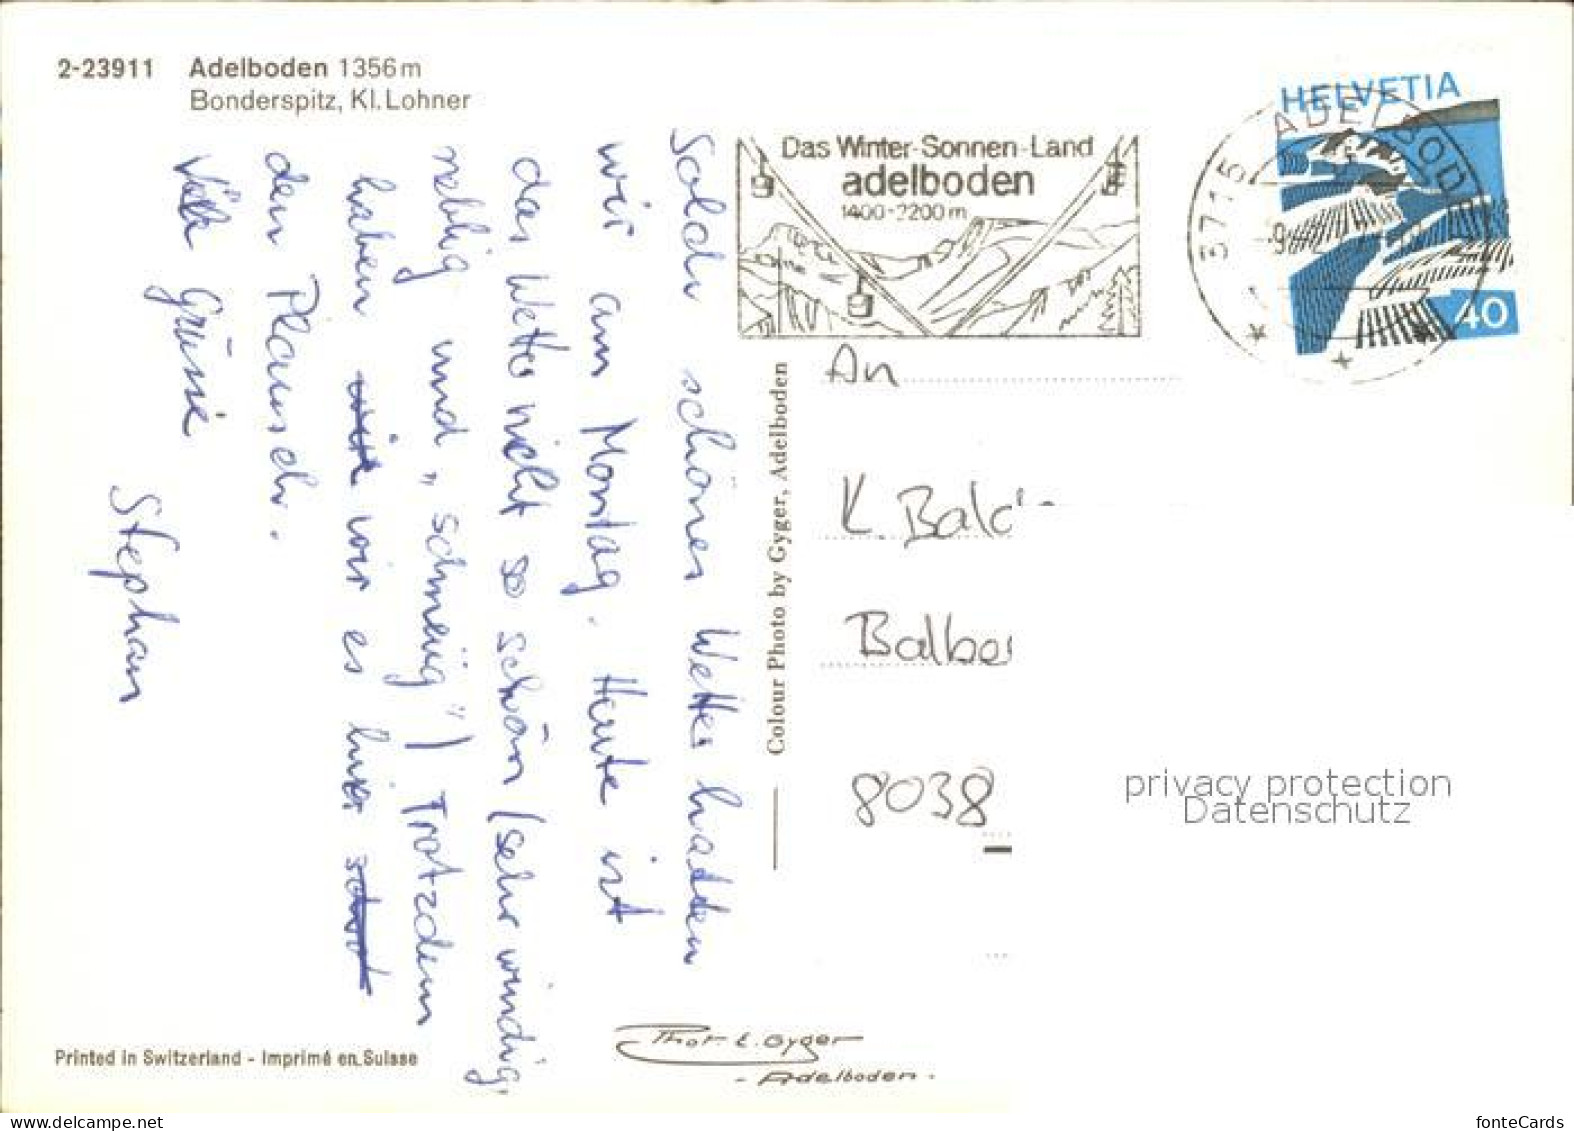 2-23911 Adelboden 1356m
Bonderspitz, Kl. Lohner
Solch schönes Wetter hatten
wir am Montag. Heute ist
das Wetter nicht so schön (sehr windig,
neblig und „schneiig") Trotzdem
haben wir es hier
den Plausch.
Grüsse
Stephan
Printed in Switzerland - Imprimé en Suisse
Colour Photo by Gyger, Adelboden
Phot. E. Gyger
- Adelboden -
Das Winter-Sonnen-Land
adelboden
1400-2200m
HELVETIA
3715 ADELBODEN
40
An
K. Bald
Balber
8038
privacy protection
Datenschutz
fonteCards